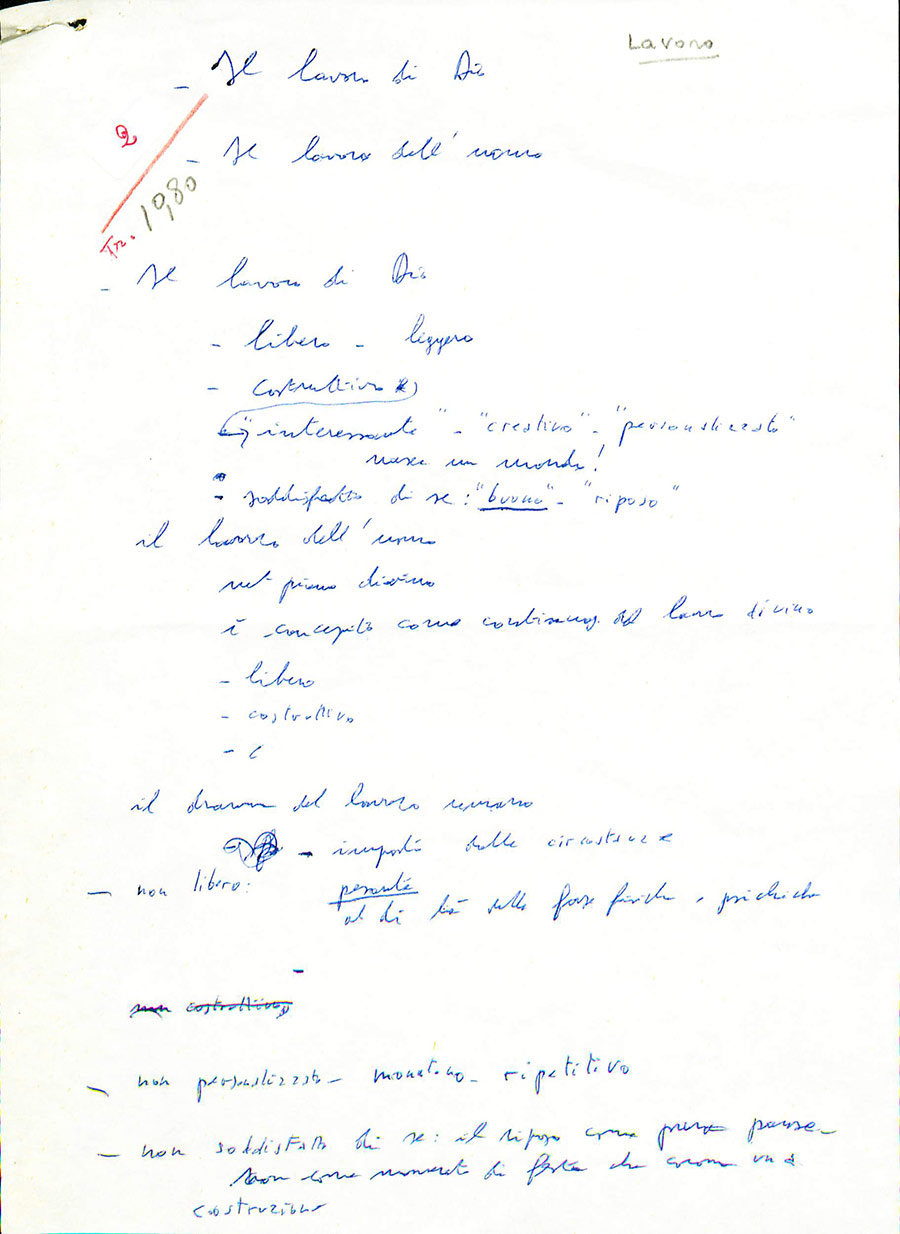 Lavoro
- Il lavoro di Dio
2
- Il lavoro dell'uomo
Tr. 19,80
- Il lavoro di Dio
- libero - leggero
- costruttivo
"interessante" - "creativo" - "personalizzato"
nasce un mondo!
- soddisfatto di se: "buono" - "riposo"
il lavoro dell'uomo
nel piano divino
è concepito come continuaz. del lavoro divino
- libero
- costruttivo
- c
il dramma del lavoro umano
- imposto dalle circostanze
- non libero: pesante
al di là delle forze fisiche, psichiche
-
non costruttivo
- non personalizzato - monotono - ripetitivo
- non soddisfatto di se: il riposo come pausa -
non come momento di festa che corona una
costruzione